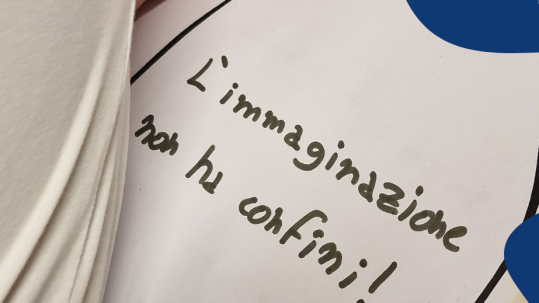 L'immaginazione
non ha confini!